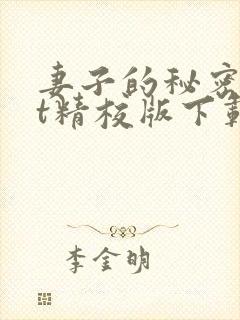 妻子的秘密
t精校版下載
李金明